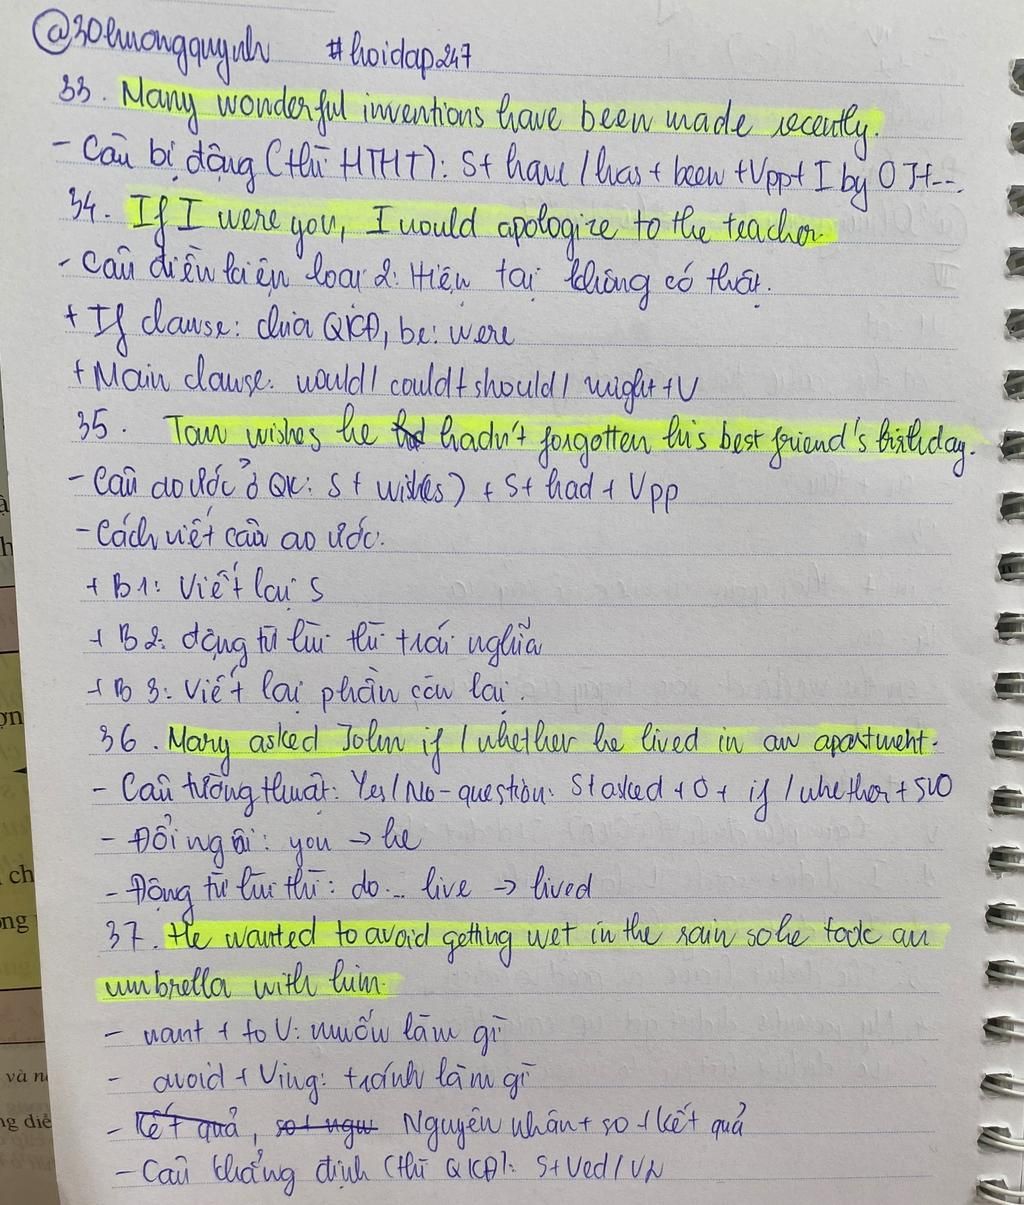 @30huongquynh #hoidap247
33. Many wonderful inventions have been made recently.
- Câu bị động (thì HTHT): S + have / has + been + Vpp + [by O]+...
34. If I were you, I would apologize to the teacher.
- Câu điều kiện loại 2: Hiện tại không có thật.
+ If clause: chia QKĐ, be: were
+ Main clause: would / could + should / might + V
35. Tom wishes he hadn't forgotten his best friend's birthday.
- Câu ao ước ở QK: S + wish(es) + S + had + Vpp
- Cách viết câu ao ước:
+ B1: Viết lại S
+ B2: động từ lùi thì trái nghĩa
+ B3: Viết lại phần còn lại.
36. Mary asked John if / whether he lived in an apartment.
- Câu tường thuật: Yes/No-question: S + asked + O + if / whether + SVO
- Đổi ngôi: you → he
- Động từ lùi thì: do... live → lived
37. He wanted to avoid getting wet in the rain so he took an
umbrella with him.
- want + to V: muốn làm gì
- avoid + Ving: tránh làm gì
- Kết quả, Nguyên nhân + so + kết quả
- Câu khẳng định (thì QKĐ): S + Ved / VN
và
ng
ch